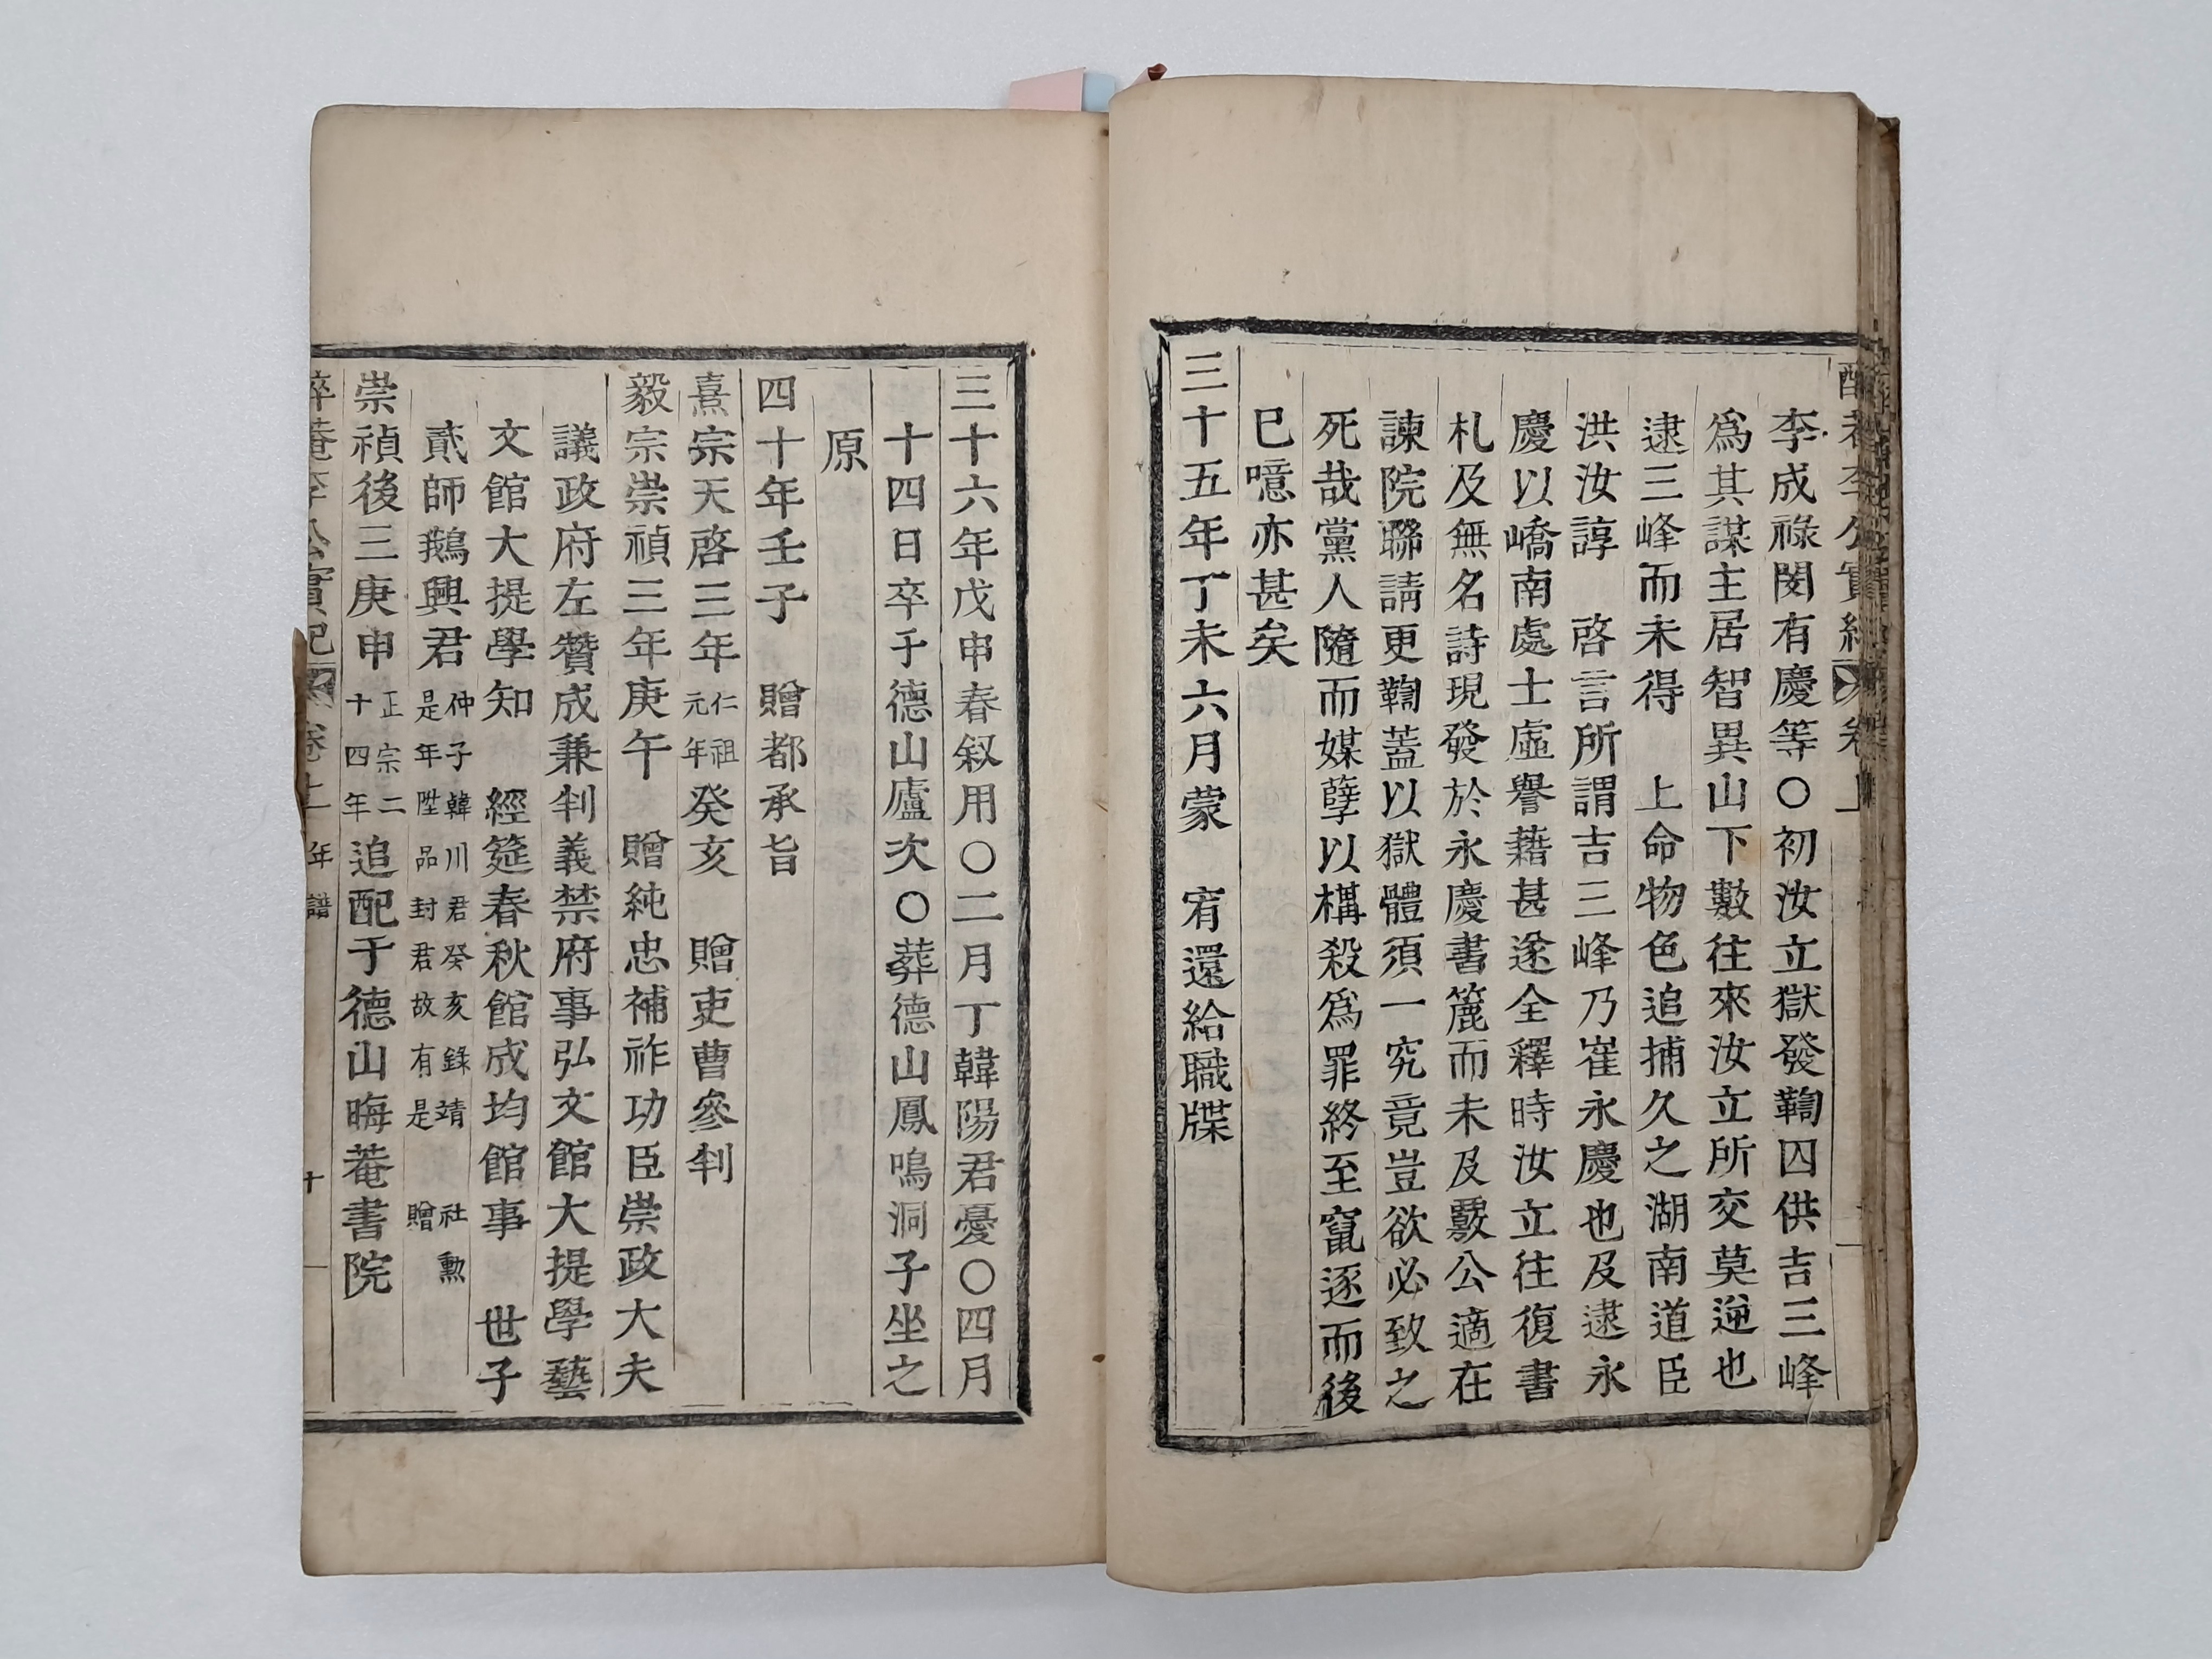 李公實紀 卷上
李成祿閔有慶等〇初汝立獄發鞫囚供吉三峰
爲其謀主居智異山下數往來汝立所交莫逆也
逮三峰而未得 上命物色追捕久之湖南道臣
洪汝諄 啓言所謂吉三峰乃崔永慶也及逮永
慶以嶠南處士虛譽藉甚遂全釋時汝立往復書
札及無名詩現發於永慶書簏而未及覈公適在
諫院聯請更鞫蓋以獄體須一究竟豈欲必致之
死哉黨人隨而媒孽以構殺爲罪終至竄逐而後
已噫亦甚矣
三十五年丁未六月蒙 宥還給職牒
三十六年戊申春叙用〇二月丁韓陽君憂〇四月
十四日卒于德山廬次〇葬德山鳳鳴洞子坐之
原
四十年壬子 贈都承旨
熹宗天啓三年仁祖元年癸亥 贈吏曹參判
毅宗崇禎三年庚午 贈純忠補祚功臣崇政大夫
議政府左贊成兼判義禁府事弘文館大提學藝
文館大提學知 經筵春秋館成均館事 世子
貳師鵝興君仲子韓川君癸亥錄靖社勳是年陞品封君故有是贈
崇禎後三庚申正宗二十四年追配于德山晦菴書院
菴李公實紀 卷上 年譜 十